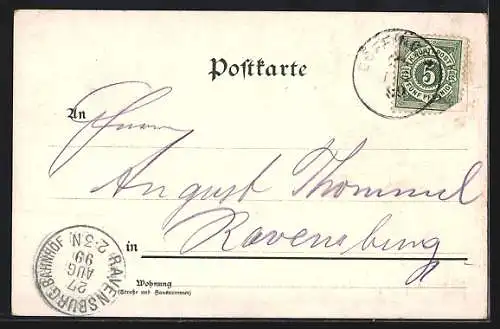 Postkarte
5
FÜNF PFENNIG
An
Herrn
August Thommel
in Ravensburg
Wohnung
(Straße und Hausnummer)
RAVENSBURG BAHNHOF
27
AUG
99
2-3 N